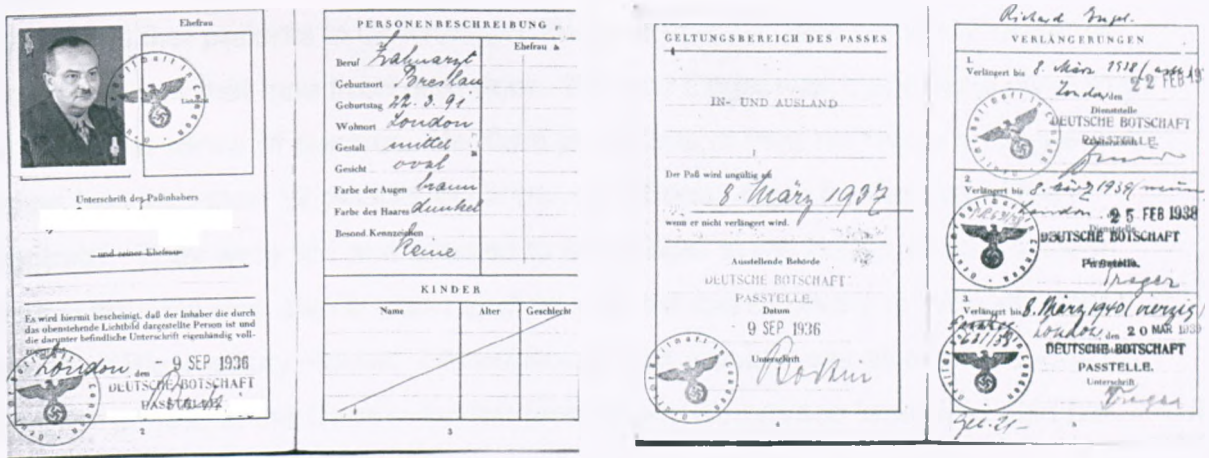 Ehefrau
Unterschrift des Paßinhabers
und seiner Ehefrau
Es wird hiermit bescheinigt, daß der Inhaber die durch
das obenstehende Lichtbild dargestellte Person ist und
die darunter befindliche Unterschrift eigenhändig voll-
London, den - 9 SEP 1936
DEUTSCHE BOTSCHAFT
PASSTELLE
2
PERSONENBESCHREIBUNG
Ehefrau
Beruf Zahnarzt
Geburtsort Breslau
Geburtstag 22.3.91
Wohnort London
Gestalt mittel
Gesicht oval
Farbe der Augen braun
Farbe des Haares dunkel
Besond. Kennzeichen
Keine
KINDER
Name Alter Geschlecht
3
GELTUNGSBEREICH DES PASSES
IN- UND AUSLAND
Der Paß wird ungültig am
8. März 1937
wenn er nicht verlängert wird.
Ausstellende Behörde
DEUTSCHE BOTSCHAFT
PASSTELLE.
Datum
9 SEP 1936
Unterschrift
4
Richard
VERLÄNGERUNGEN
1.
Verlängert bis 8. März 1938
London, den 22 FEB 193
Dienststelle
DEUTSCHE BOTSCHAFT
PASSTELLE.
2.
Verlängert bis 8. März 1939
London 25 FEB 1938
Dienststelle
DEUTSCHE BOTSCHAFT
Passtelle.
3.
Verlängert bis 8. März 1940 (vierzig)
London, den 20 MAR 1939
DEUTSCHE BOTSCHAFT
PASSTELLE.
Unterschrift
5